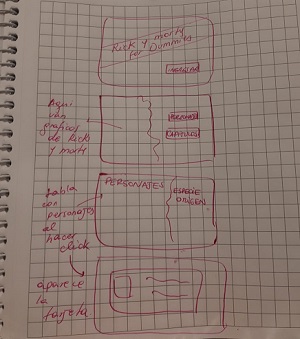 Rick y morty
for Dummies
Aqui
van
graficos
de Rick
y morty
PERSONAJES
CAPITULOS
tabla
con
personajes
al
hacer
click
PERSONAJES
ESPECIE
ORIGEN
aparece
la
tarjeta